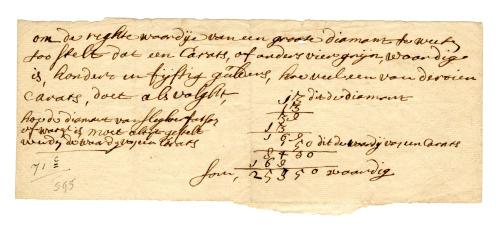 om de rechte waardije van een groote diamant te weeten
soo stelt dat een Carats, of anders vier grijn waardig
is, hondert en fijftig guldens, hoe veel een van dertien
Carats, doet als volght,
13 dit de diamant
13
39
13
169
150 dit de waardij van een Carats
8450
169
som, 25350 waardig
hoe de diamant van
of waar is moet alsoo gestelt
werden de waardij van een Carats
71 C
595